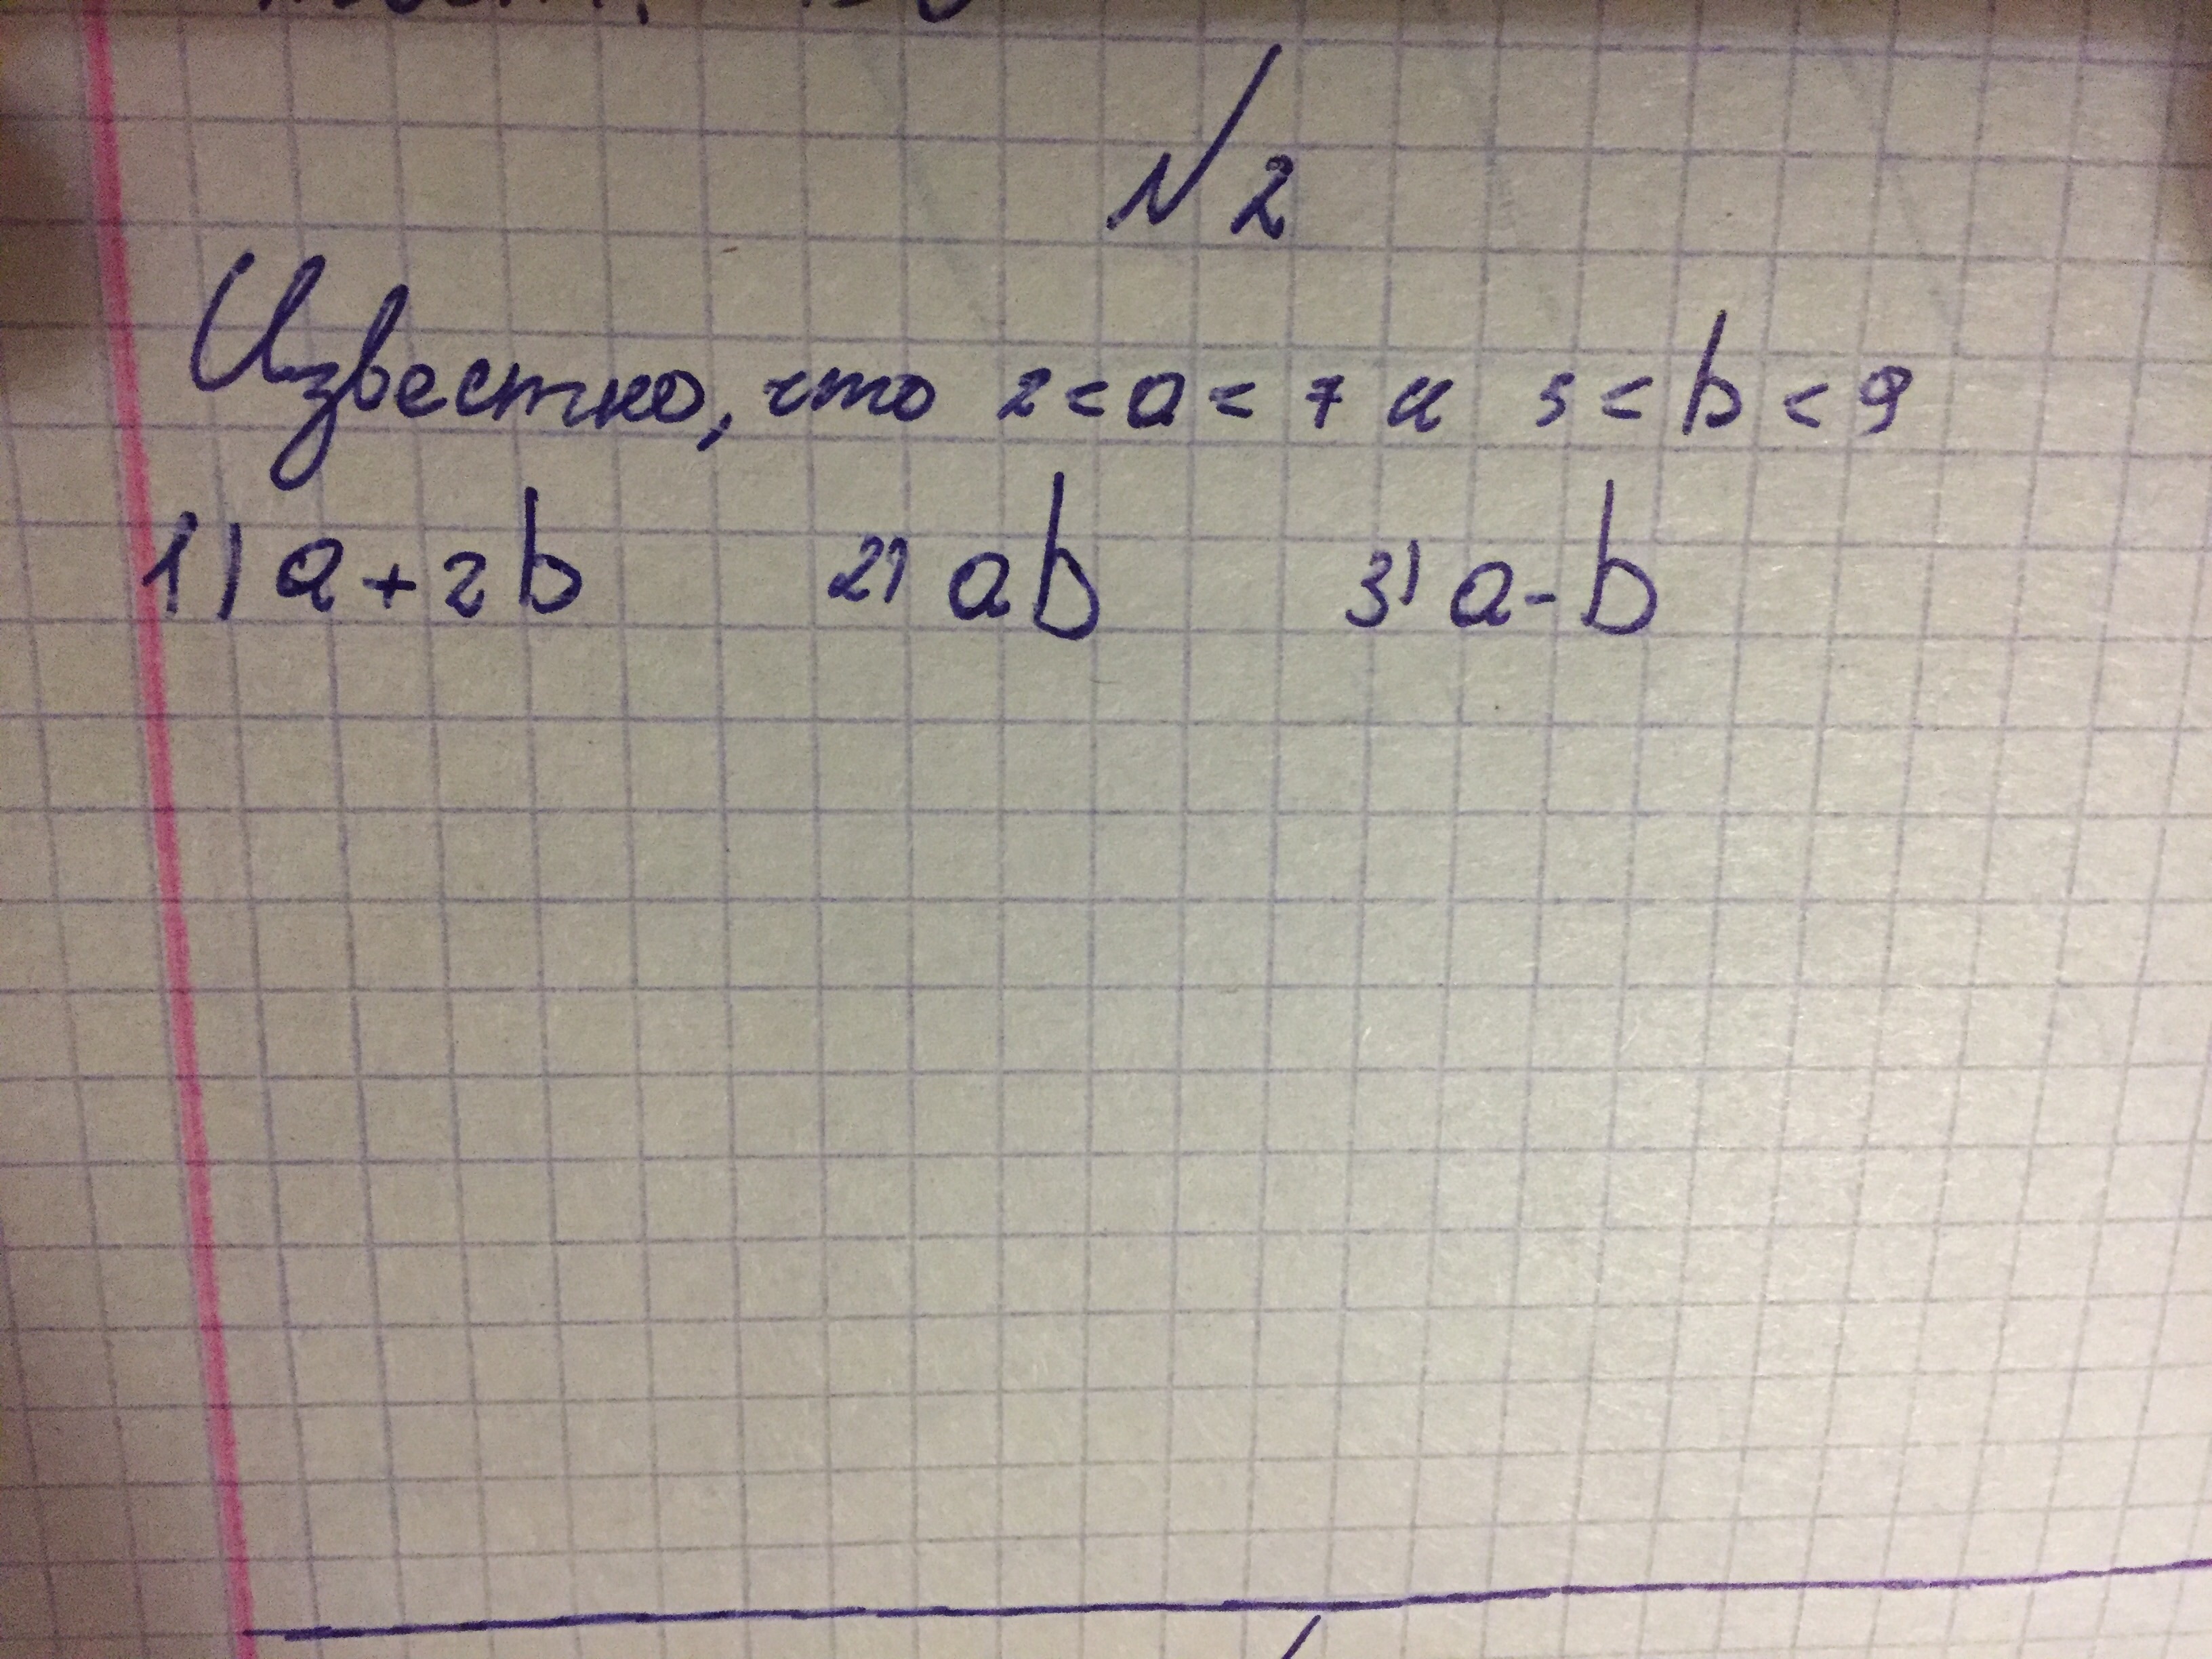 N2
Известно, что 2<a<7 и 3<b<9
1) a+2b 2) ab 3) a-b